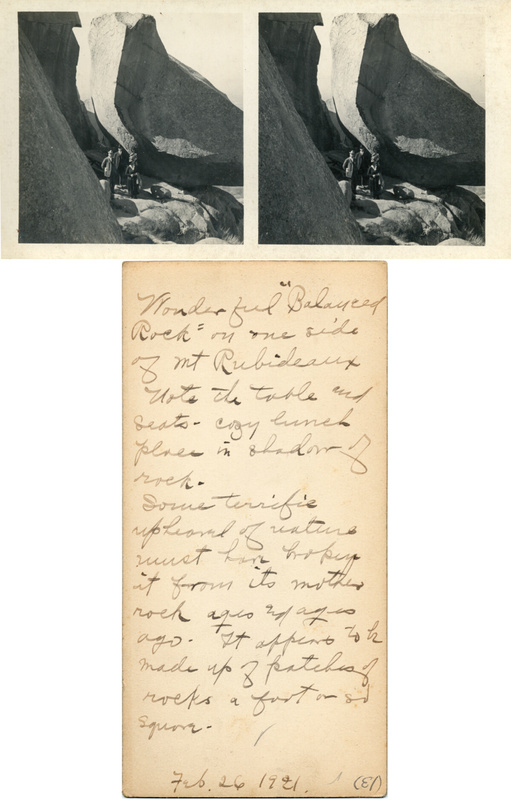 Wonderful "Balanced
Rock" on one side
of Mt Rubideaux
Note the table and
seats - cozy lunch
place in shadow of
rock.
Some terrific
upheaval of nature
must have broken
it from its mother
rock ages and ages
ago. It appears to be
made up of patches of
rocks a foot or so
square.
Feb. 26 1921. (E1)